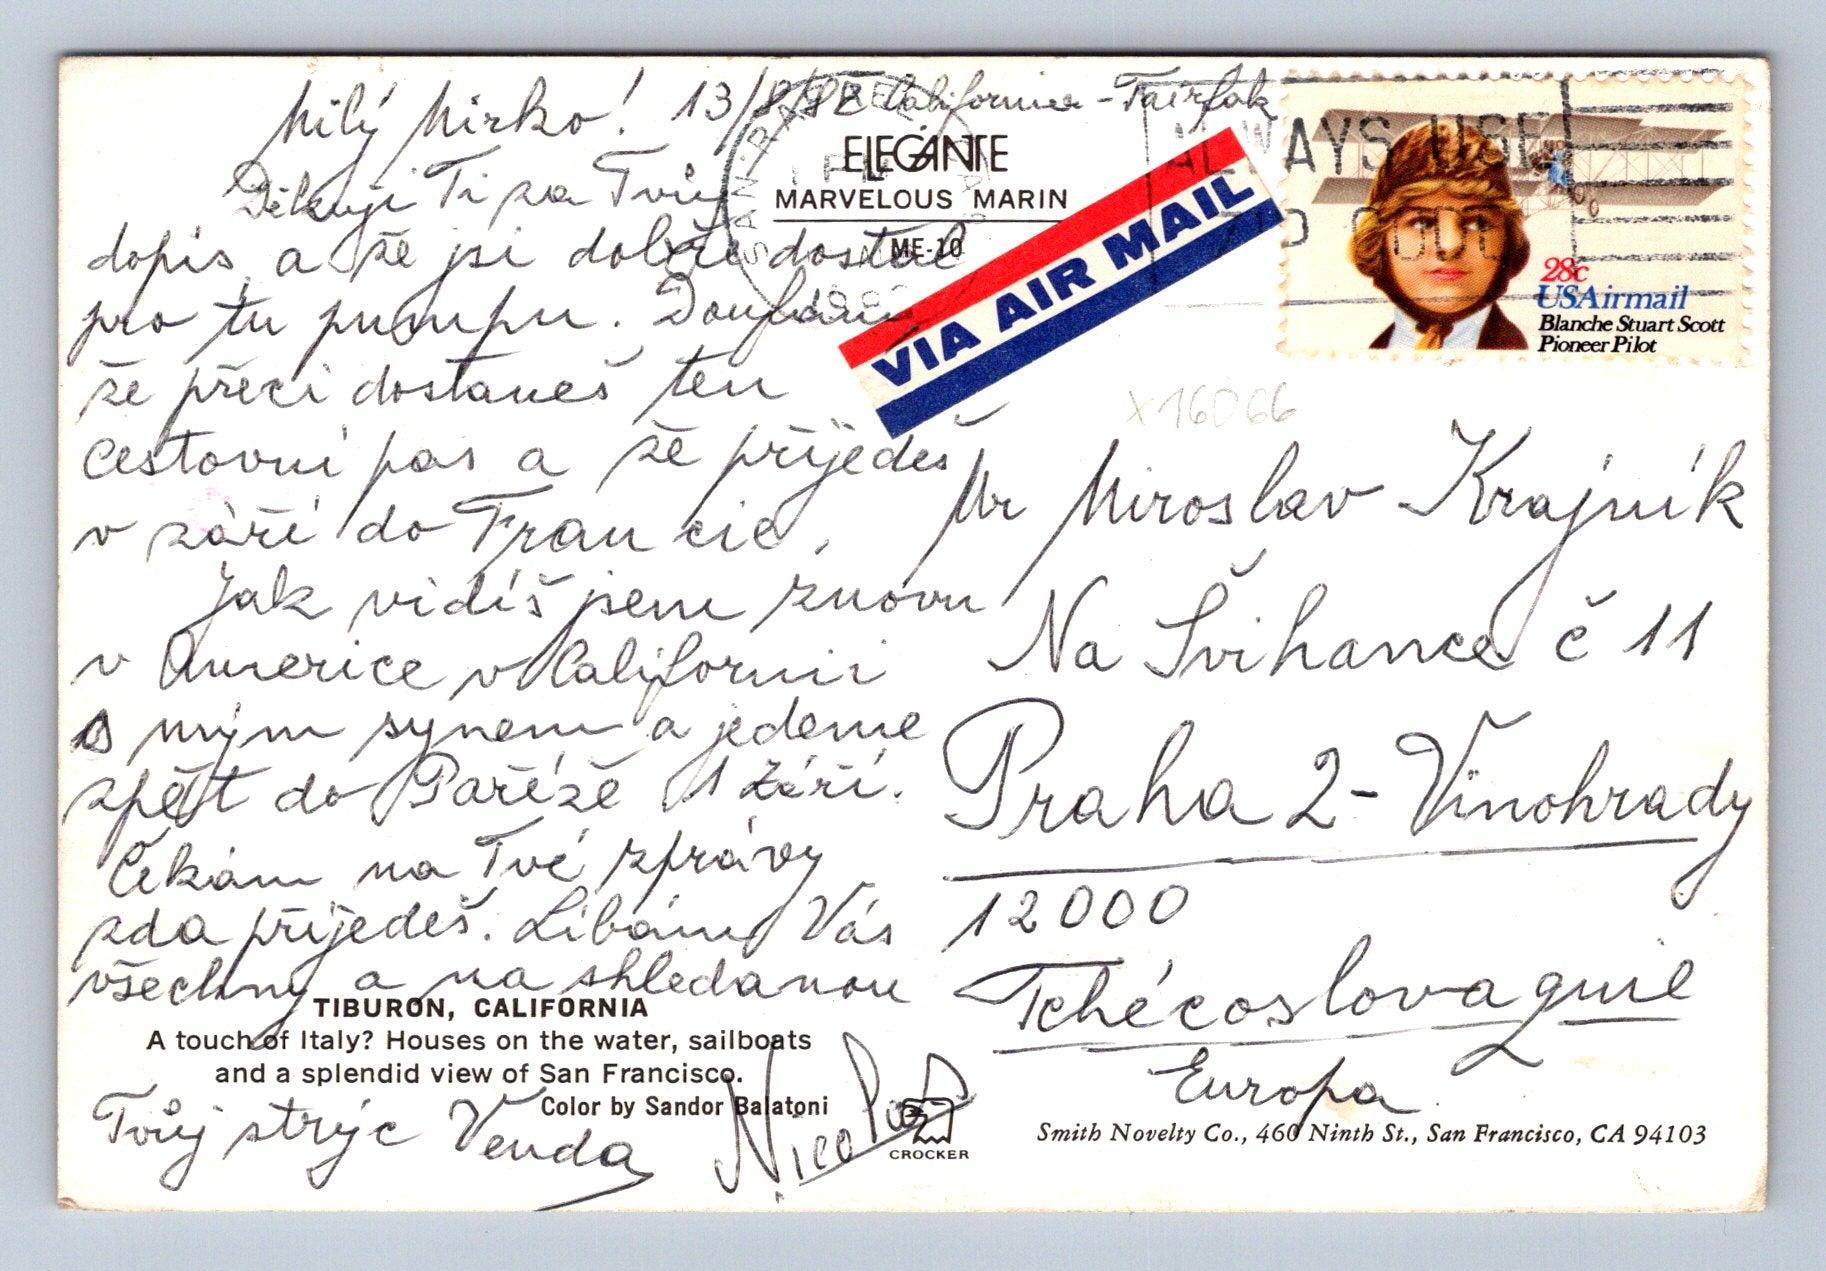 Milý Mirko! 13/8/82 Californie - Fairfak
Děkuji Ti za Tvůj
dopis, a že jsi dobře dostal
pro tu pumpu. Doufám
že přeci dostaneš ten
cestovní pas a že přijedeš
v září do Francie.
Jak vidíš jsem znovu
v Americe v Californii
s mým synem a jedeme
zpět do Paříže 1 Září.
Čekám na Tvé zprávy
zda přijedeš. Líbám Vás
všechny a na shledanou
Tvůj strýc Venda
Nicolas
ELEGANTE
MARVELOUS MARIN
ME-10
VIA AIR MAIL
ALWAYS USE
ZIP CODE
SAN RAFAEL
28c
USAirmail
Blanche Stuart Scott
Pioneer Pilot
X16066
Mr Miroslav Krajník
Na Švihance č 11
Praha 2 - Vinohrady
12000
Tchécoslovaquie
Europa
TIBURON, CALIFORNIA
A touch of Italy? Houses on the water, sailboats
and a splendid view of San Francisco.
Color by Sandor Balatoni
CROCKER
Smith Novelty Co., 460 Ninth St., San Francisco, CA 94103